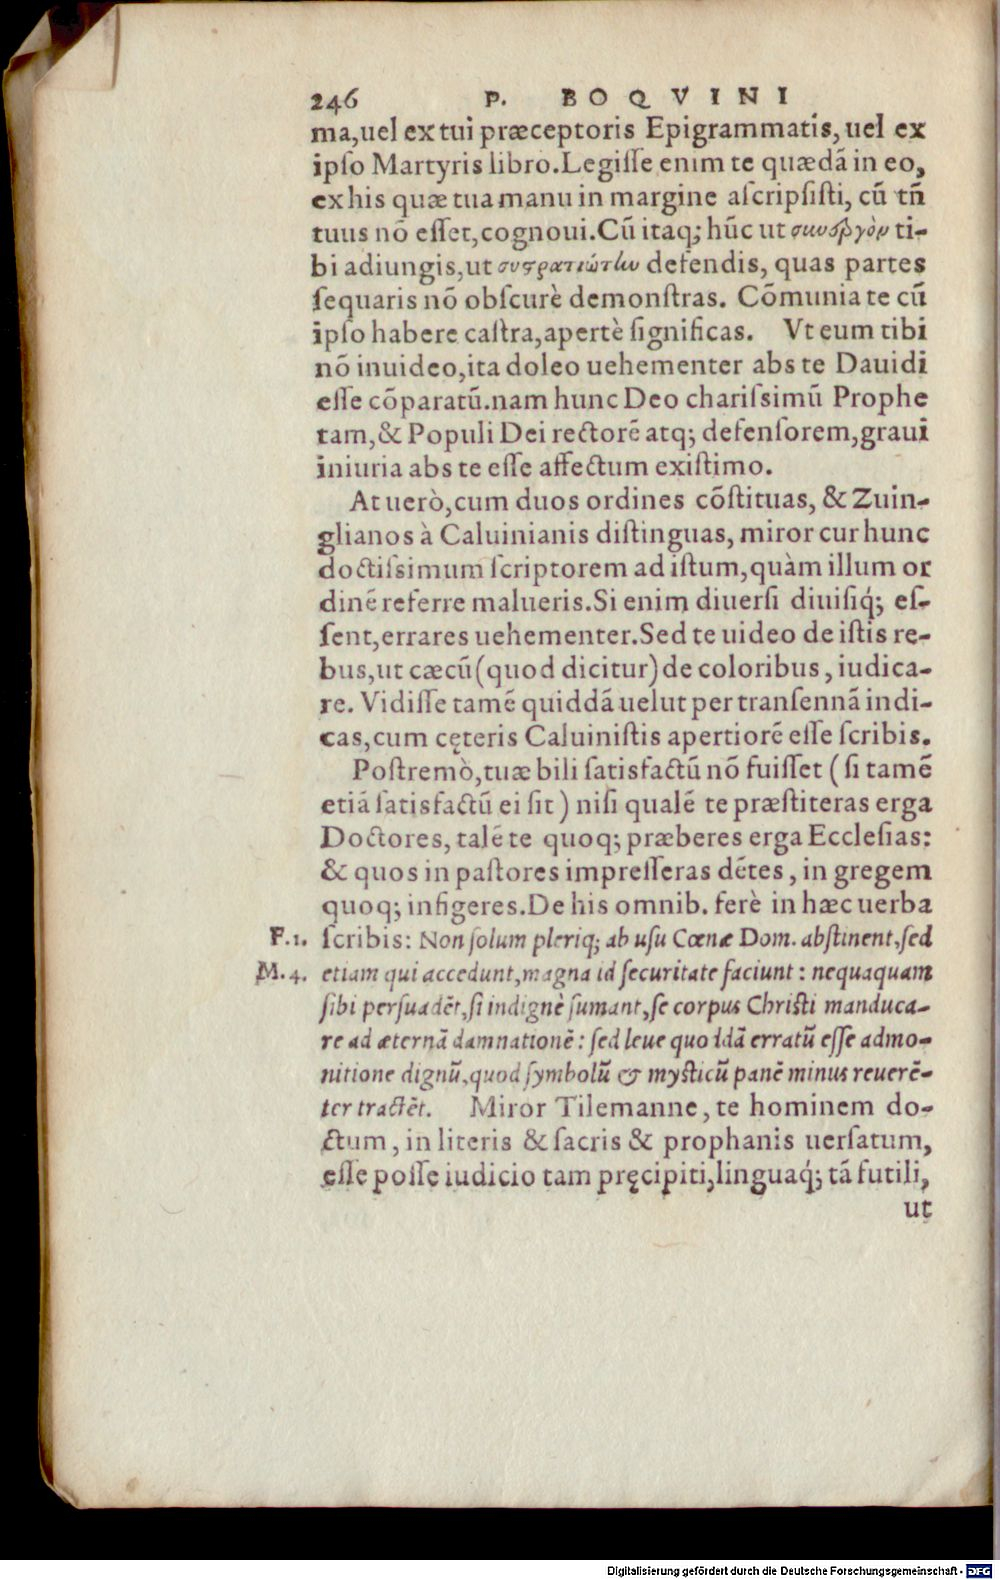 246 P. BOQVINI
ma, uel ex tui præceptoris Epigrammatis, uel ex
ipſo Martyris libro. Legiſſe enim te quædā in eo,
ex his quæ tua manu in margine aſcripſiſti, cū tñ
tuus nō eſſet, cognoui. Cū itaq; hūc ut συνεργὸν ti-
bi adiungis, ut συςρατιώτην defendis, quas partes
ſequaris nō obſcurè demonſtras. Cōmunia te cū
ipſo habere caſtra, apertè ſignificas. Vt eum tibi
nō inuideo, ita doleo uehementer abs te Dauidi
eſſe cōparatū. nam hunc Deo chariſsimū Prophe
tam, & Populi Dei rectorē atq; defenſorem, graui
iniuria abs te eſſe affectum exiſtimo.
At uerò, cum duos ordines cōſtituas, & Zuin-
glianos à Caluinianis diſtinguas, miror cur hunc
doctiſsimum ſcriptorem ad iſtum, quàm illum or
dinē referre malueris. Si enim diuerſi diuiſiq́; eſ-
ſent, errares uehementer. Sed te uideo de iſtis re-
bus, ut cæcū (quod dicitur) de coloribus, iudica-
re. Vidiſſe tamē quiddā uelut per tranſennā indi-
cas, cum cęteris Caluiniſtis apertiorē eſſe ſcribis.
Poſtremò, tuæ bili ſatisfactū nō fuiſſet (ſi tamē
etiā ſatisfactū ei ſit) niſi qualē te præſtiteras erga
Doctores, talē te quoq; præberes erga Eccleſias:
& quos in paſtores impreſſeras dētes, in gregem
quoq; infigeres. De his omnib. ferè in hæc uerba
F.1. ſcribis: Non ſolum pleriq; ab uſu Cœnæ Dom. abſtinent, ſed
M.4. etiam qui accedunt, magna id ſecuritate faciunt: nequaquam
ſibi perſuadēt, ſi indignè ſumant, ſe corpus Chriſti manduca-
re ad æternā damnationē: ſed leue quoddā erratū eſſe admo-
nitione dignū, quod ſymbolū & myſticū panē minus reuerē-
ter tractēt. Miror Tilemanne, te hominem do-
ctum, in literis & ſacris & prophanis uerſatum,
eſſe poſſe iudicio tam pręcipiti, linguaq́; tā futili,
ut
Digitalisierung gefördert durch die Deutsche Forschungsgemeinschaft - DFG